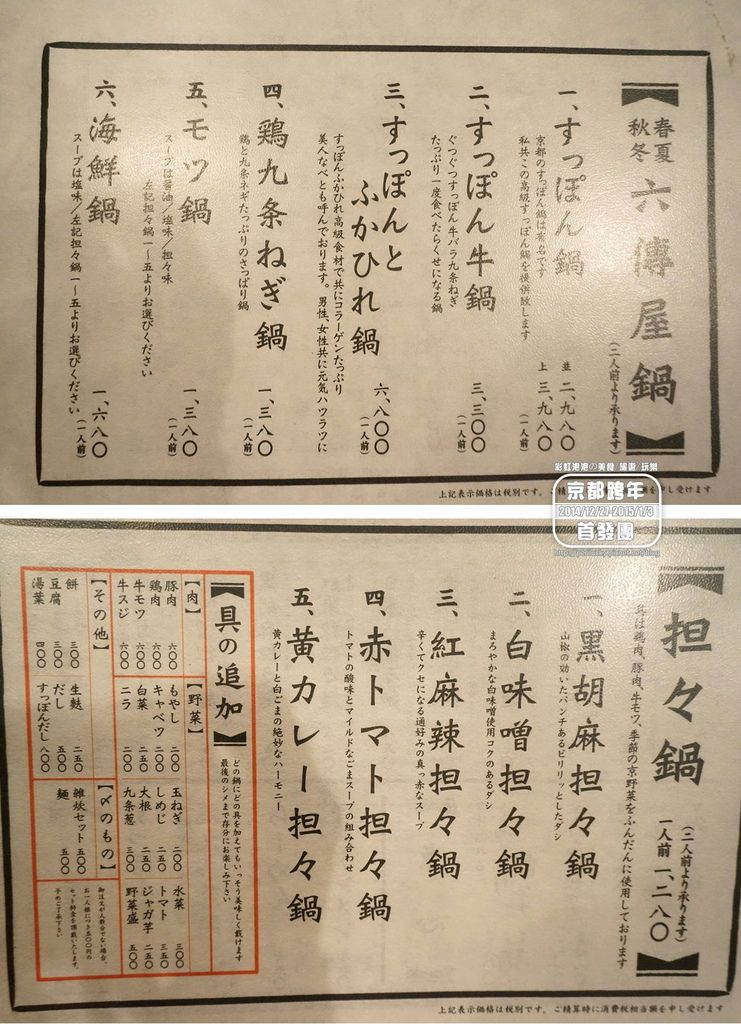 春夏
秋冬
六傳屋鍋
(二人前より承ります)
一、すっぽん鍋
京都のすっぽん鍋は有名です
私共この高級すっぽん鍋を提供致します
並 二、九八〇
上 三、九八〇
(一人前)
二、すっぽん牛鍋
ぐつぐつすっぽん牛バラ九条ねぎ
たっぷり一度食べたらくせになる鍋
三、三〇〇
(一人前)
三、すっぽんと
ふかひれ鍋
すっぽんふかひれ高級食材で共にコラーゲンたっぷり
美人なべとも呼んでおります。男性、女性共に元気ハツラツに
六、八〇〇
(一人前)
四、鶏九条ねぎ鍋
鶏と九条ネギたっぷりのさっぱり鍋
一、三八〇
(一人前)
五、モツ鍋
スープは醤油/塩味/担々味
左記担々鍋一〜五よりお選びください
一、三八〇
(一人前)
六、海鮮鍋
スープは塩味/左記担々鍋一〜五よりお選びください
一、六八〇
(一人前)
上記表示価格は税別です。
額を申し受けます
彩虹泡泡の美食/旅遊/玩樂
京都跨年
2014/12/27-2015/1/3
首發團
担々鍋
(二人前より承ります)
一人前 一、二八〇
具は鶏肉、豚肉、牛モツ、季節の京野菜をふんだんに使用しております
一、黒胡麻担々鍋
山椒の効いたパンチあるピリリッとしたダシ
二、白味噌担々鍋
まろやかな白味噌使用コクのあるダシ
三、紅麻辣担々鍋
辛くてクセになる通好みの真っ赤なスープ
四、赤トマト担々鍋
トマトの酸味とマイルドなごまスープの組み合わせ
五、黄カレー担々鍋
黄カレーと白ごまの絶妙なハーモニー
具の追加
どの鍋にどの具を加えてもいっそう美味しく戴けます
最後のシメまで存分にお楽しみ下さい
【肉】
豚肉 六〇〇
鶏肉 六〇〇
牛モツ 六〇〇
牛スジ 六〇〇
【野菜】
もやし 二〇〇
キャベツ 二〇〇
白菜 二五〇
ニラ 二〇〇
玉ねぎ 二〇〇
しめじ 二五〇
大根 二五〇
九条葱 三〇〇
水菜 三〇〇
トマト 三五〇
ジャガ芋 二五〇
野菜盛 五〇〇
【その他】
餅 三〇〇
豆腐 三〇〇
湯葉 四〇〇
生麩 二五〇
だし 五〇〇
すっぽんだし 八〇〇
【〆のもの】
雑炊セット 五〇〇
麺 五〇〇
御注文が人数分でない場合、
お一人様につき五〇〇円の
セット料金を頂戴いたします。
予めご了承下さい
上記表示価格は税別です。ご精算時に消費税相当額を申し受けます